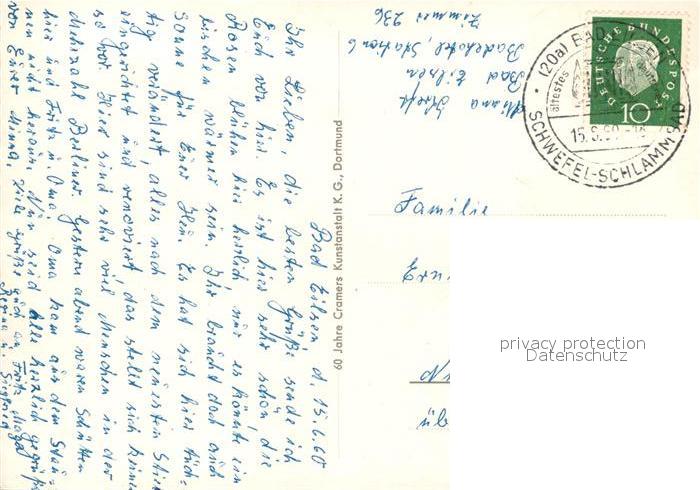 Bad Eilsen d. 15.6.60
Ihr Lieben, die besten Grüße sende ich
Euch von hier. Es ist hier sehr schön, die
Rosen blühen hier herrlich nur es könnte ein
bischen wärmer sein. Ihr braucht doch auch
Sonne für Euer Heu. Es hat sich hier tüch-
tig verändert, alles nach dem neuestem Stiel
eingerichtet und renoviert das stellt sich keiner
so vor. Hier sind sehr viel Menschen in der
mehrzahl Berliner. Gestern abend waren Schütten
hier und Fritz u. Oma. Oma kam aus dem Stau-
nen nicht heraus. Nun seid alle herzlich gegrüßt
von Eurer Minna, Viele Grüße auch an Fritz
Regina u. Siegfried
60 Jahre Cramers Kunstanstalt K. G., Dortmund
Minna
Bad Eilsen
Badehotel, Station 6
Zimmer 236
(20a) BAD EILSEN
ältestes
15.6.60
SCHWEFEL-SCHLAMMBAD
DEUTSCHE BUNDESPOST
10
Familie
privacy protection
Datenschutz
üb